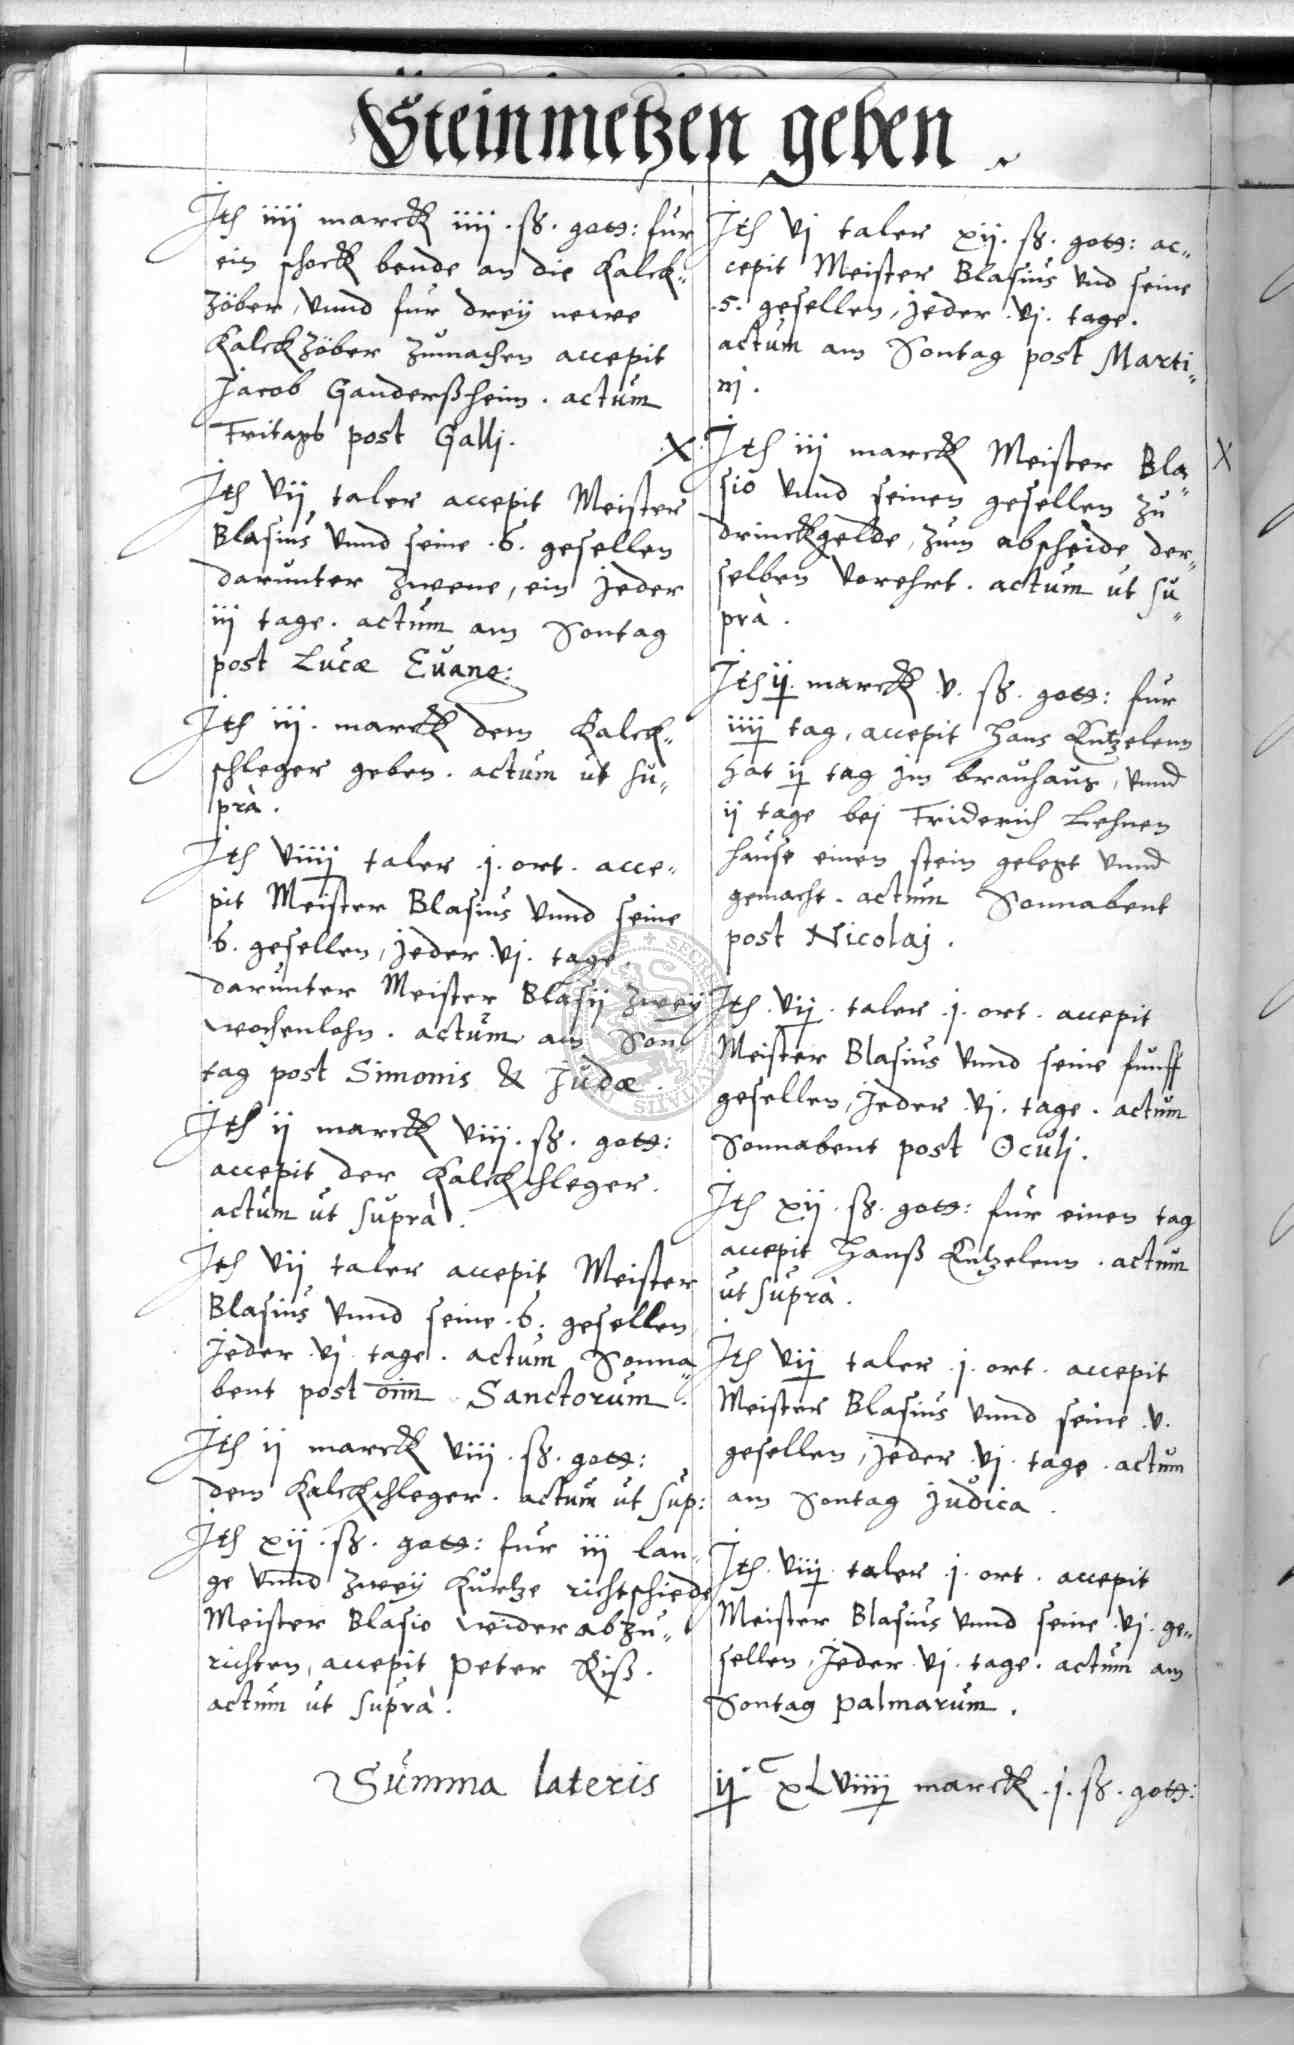 Steinmetzen geben
Ith iiij marck iiij . ß . gott: fur
ein schock bende an die Kalck=
zöber, vnnd fur dreÿ newe
Kalckzöber zumachen accepit
Jacob Ganderßheim . actum
Fritags post Galli.
Ith vij taler accepit Meister
Blasius vnnd seine .6. gesellen
darunter zweene, ein jeder
iij tage . actum am Sontag
post Lucæ Euang:
Ith iij . marck dem Kalck=
schleger geben . actum ut su=
prà .
Ith viiij taler .j. ort . acce=
pit Meister Blasius vnnd seine
6. gesellen, jeder .vj. tage.
darunter Meister Blasij zweÿ
wochenlohn . actum am Son
tag post Simonis & Judæ .
Ith ij marck viij . ß . gott:
accepit der Kalckschleger.
actum ut suprà .
Ith vij taler accepit Meister
Blasius vnnd seine .6. gesellen
jeder .vj. tage . actum Sonna=
bent post om̅ Sanctorum .
Ith ij marck viij . ß . gott:
dem Kalckschleger . actum ut sup:
Ith xij . ß . gott: fur iij lan=
ge vnnd zweÿ kurtze richtschiede
Meister Blasio wider abzu=
richten, accepit Peter Riß .
actum ut suprà .
Summa lateris
X
Ith vj taler xij . ß . gott: ac=
cepit Meister Blasius vnd seine
.5. gesellen, jeder .vj. tage .
actum am Sontag post Marti=
nj .
Ith iij marck Meister Bla=
sio vnnd seinen gesellen zu
drinckgelde, zum abscheide der=
selben vorehrt . actum ut su=
prà .
X
Ith ij . marck .v. ß . gott: fur
iiij tag, accepit Hans
hat ij tag jm brauhaus, vnnd
ij tage bej Friderich Lehnen
hause einen stein gelegt vnnd
gemacht . actum Sonnabent
post Nicolaj .
Ith . vij . taler .j. ort . accepit
Meister Blasius vnnd seine funff
gesellen, jeder .vj. tage . actum
Sonnabent post Oculj .
Ith xij . ß . gott: fur einen tag
accepit Hanß . actum
ut suprà .
Ith vij taler .j. ort . accepit
Meister Blasius vnnd seine .v.
gesellen, jeder .vj. tage . actum
am Sontag Judica .
Ith . viij . taler .j. ort . accepit
Meister Blasius vnnd seine .vj. ge=
sellen, jeder .vj. tage . actum am
Sontag Palmarum .
ij C xLviiij marck .j. ß . gott: